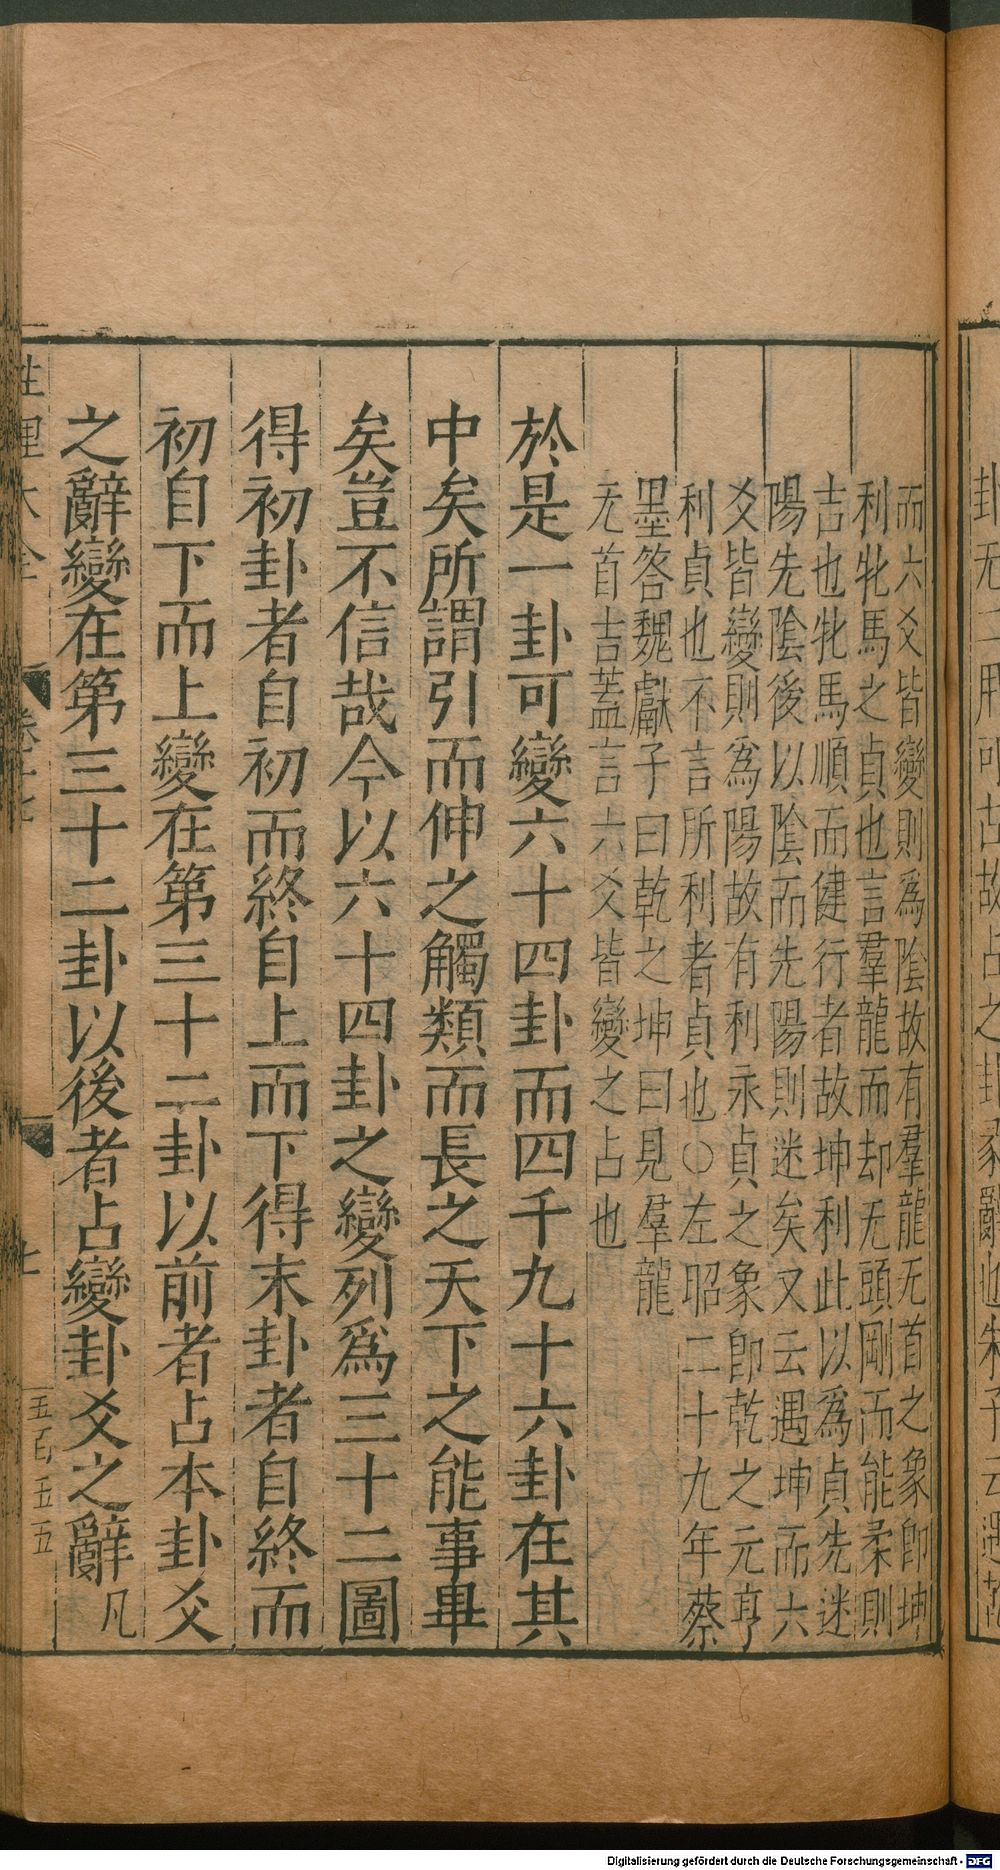 而六爻皆變則爲陰故有羣龍无首之象卽坤
利牝馬之貞也言羣龍而却无頭剛而能柔則
吉也牝馬順而健行者故坤利此以爲貞先迷
陽先陰後以陰而先陽則迷矣又云遇坤而六
爻皆變則爲陽故有利永貞之象卽乾之元亨
利貞也不言所利者貞也○左昭二十九年蔡
墨答魏獻子曰乾之坤曰見羣龍
无首吉蓋言六爻皆變之占也
於是一卦可變六十四卦而四千九十六卦在其
中矣所謂引而伸之觸類而長之天下之能事畢
矣豈不信哉今以六十四卦之變列爲三十二圖
得初卦者自初而終自上而下得末卦者自終而
初自下而上變在第三十二卦以前者占本卦爻
之辭變在第三十二卦以後者占變卦爻之辭凡
性理大全
卷十七
七
五百五五
Digitalisierung gefördert durch die Deutsche Forschungsgemeinschaft - DFG